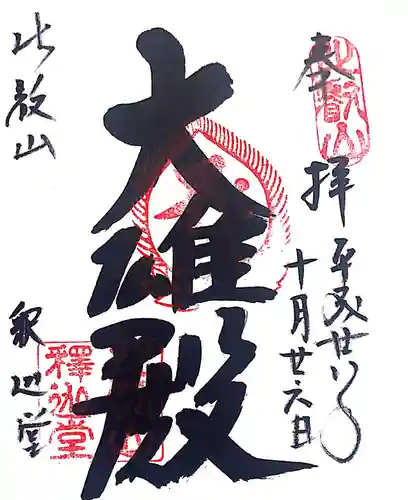 奉拝
比叡山
平成廿八年
十月廿六日
大雄殿
比叡山
釈迦堂
釋迦堂